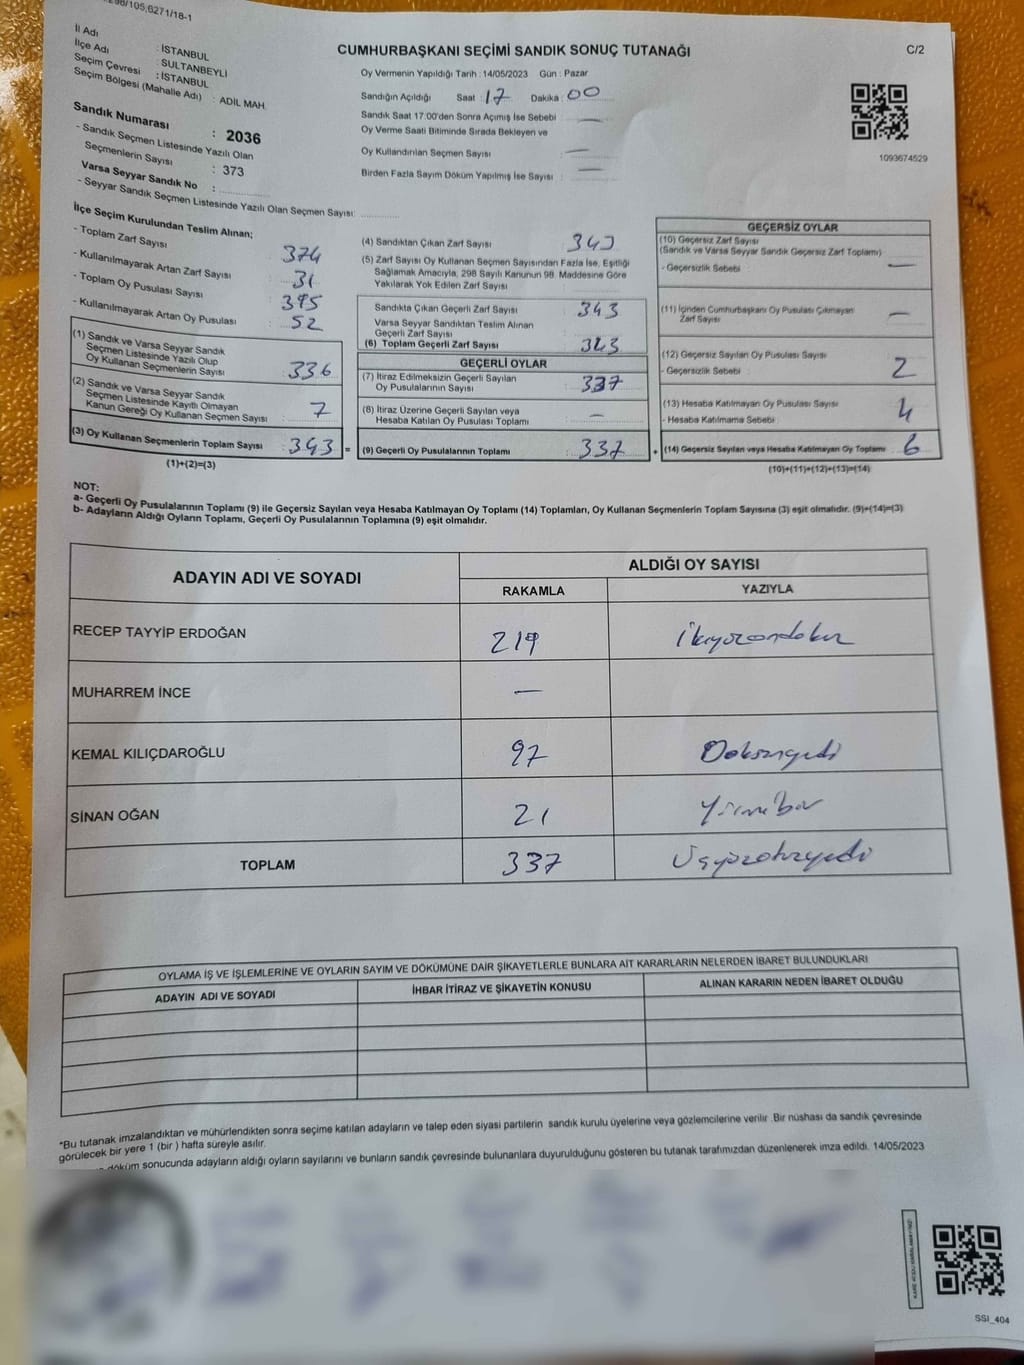 298/105,6271/18-1
C/2
CUMHURBAŞKANI SEÇİMİ SANDIK SONUÇ TUTANAĞI
İl Adı : İSTANBUL
İlçe Adı : SULTANBEYLİ
Seçim Çevresi : İSTANBUL
Seçim Bölgesi (Mahalle Adı) : ADİL MAH.
Sandık Numarası : 2036
- Sandık Seçmen Listesinde Yazılı Olan
Seçmenlerin Sayısı : 373
Varsa Seyyar Sandık No :
- Seyyar Sandık Seçmen Listesinde Yazılı Olan Seçmen Sayısı:
Oy Vermenin Yapıldığı Tarih : 14/05/2023 Gün : Pazar
Sandığın Açıldığı Saat : 17 Dakika : 00
Sandık Saat 17:00'den Sonra Açımış İse Sebebi —
Oy Verme Saati Bitiminde Sırada Bekleyen ve
Oy Kullandırılan Seçmen Sayısı —
Birden Fazla Sayım Döküm Yapılmış İse Sayısı —
1093674529
İlçe Seçim Kurulundan Teslim Alınan;
- Toplam Zarf Sayısı 374
- Kullanılmayarak Artan Zarf Sayısı 31
- Toplam Oy Pusulası Sayısı 395
- Kullanılmayarak Artan Oy Pusulası 52
(1) Sandık ve Varsa Seyyar Sandık
Seçmen Listesinde Yazılı Olup
Oy Kullanan Seçmenlerin Sayısı : 336
(2) Sandık ve Varsa Seyyar Sandık
Seçmen Listesinde Kayıtlı Olmayan
Kanun Gereği Oy Kullanan Seçmen Sayısı : 7
(3) Oy Kullanan Seçmenlerin Toplam Sayısı : 343 =
(1)+(2)=(3)
(4) Sandıktan Çıkan Zarf Sayısı 343
(5) Zarf Sayısı Oy Kullanan Seçmen Sayısından Fazla İse, Eşitliği
Sağlamak Amacıyla, 298 Sayılı Kanunun 98. Maddesine Göre
Yakılarak Yok Edilen Zarf Sayısı
Sandıkta Çıkan Geçerli Zarf Sayısı : 343
Varsa Seyyar Sandıktan Teslim Alınan
Geçerli Zarf Sayısı
(6) Toplam Geçerli Zarf Sayısı : 343
GEÇERLİ OYLAR
(7) İtiraz Edilmeksizin Geçerli Sayılan
Oy Pusulalarının Sayısı : 337
(8) İtiraz Üzerine Geçerli Sayılan veya
Hesaba Katılan Oy Pusulası Toplamı : —
(9) Geçerli Oy Pusulalarının Toplamı : 337 +
GEÇERSİZ OYLAR
(10) Geçersiz Zarf Sayısı
(Sandık ve Varsa Seyyar Sandık Geçersiz Zarf Toplamı)
- Geçersizlik Sebebi : —
(11) İçinden Cumhurbaşkanı Oy Pusulası Çıkmayan
Zarf Sayısı —
(12) Geçersiz Sayılan Oy Pusulası Sayısı
- Geçersizlik Sebebi : 2
(13) Hesaba Katılmayan Oy Pusulası Sayısı
- Hesaba Katılmama Sebebi : 4
(14) Geçersiz Sayılan veya Hesaba Katılmayan Oy Toplamı : 6
(10)+(11)+(12)+(13)=(14)
NOT:
a- Geçerli Oy Pusulalarının Toplamı (9) ile Geçersiz Sayılan veya Hesaba Katılmayan Oy Toplamı (14) Toplamları, Oy Kullanan Seçmenlerin Toplam Sayısına (3) eşit olmalıdır. (9)+(14)=(3)
b- Adayların Aldığı Oyların Toplamı, Geçerli Oy Pusulalarının Toplamına (9) eşit olmalıdır.
ADAYIN ADI VE SOYADI ALDIĞI OY SAYISI
RAKAMLA YAZIYLA
RECEP TAYYİP ERDOĞAN 219 ikiyüzondokuz
MUHARREM İNCE —
KEMAL KILIÇDAROĞLU 97 Doksanyedi
SİNAN OĞAN 21 Yirmibir
TOPLAM 337 Üçyüzotuzyedi
OYLAMA İŞ VE İŞLEMLERİNE VE OYLARIN SAYIM VE DÖKÜMÜNE DAİR ŞİKAYETLERLE BUNLARA AİT KARARLARIN NELERDEN İBARET BULUNDUKLARI
ADAYIN ADI VE SOYADI İHBAR İTİRAZ VE ŞİKAYETİN KONUSU ALINAN KARARIN NEDEN İBARET OLDUĞU
*Bu tutanak imzalandıktan ve mühürlendikten sonra seçime katılan adayların ve talep eden siyasi partilerin sandık kurulu üyelerine veya gözlemcilerine verilir. Bir nüshası da sandık çevresinde
görülecek bir yere 1 (bir) hafta süreyle asılır.
döküm sonucunda adayların aldığı oyların sayılarını ve bunların sandık çevresinde bulunanlara duyurulduğunu gösteren bu tutanak tarafımızdan düzenlenerek imza edildi. 14/05/2023
SSI_404